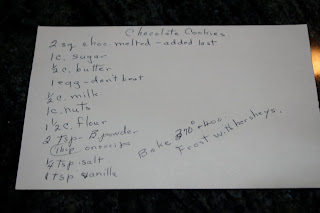 Chocolate Cookies
2 sq choc. melted - added last
1c. sugar
½c. butter
1 egg - don't beat
½c. milk
1c. nuts
1½c. flour
2 Tsp B. powder
¼ Tsp salt
1 Tsp vanilla
Bake
Frost with hersheys.